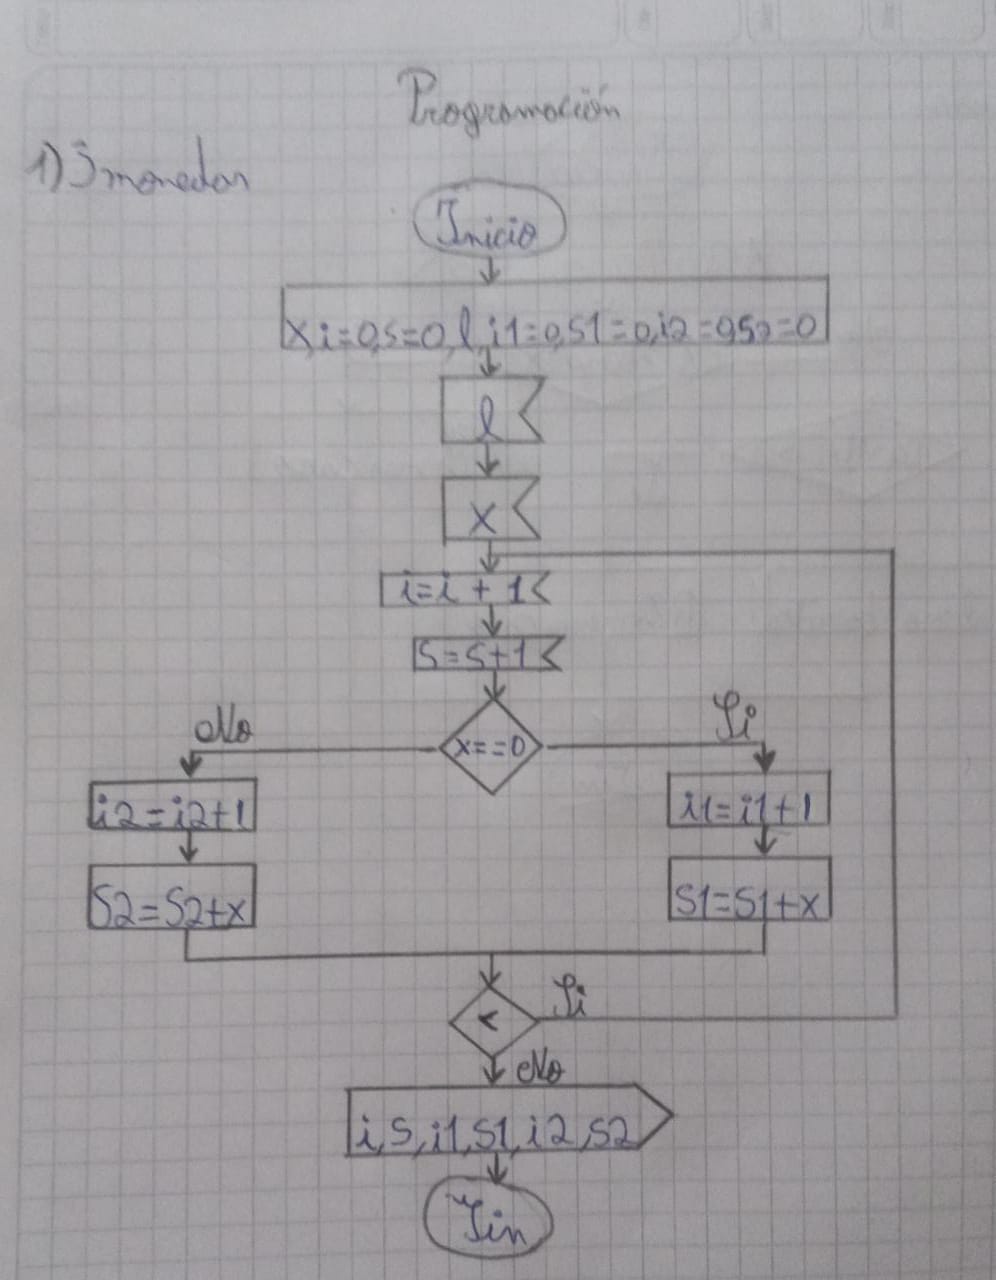 Programación
1) 3 monedas
Inicio
x,i=0,s=0,l,i1=0,S1=0,i2=0,S2=0
l
x
i=i+1
S=S+1
No
x==0
Si
i2=i2+1
i1=i1+1
S2=S2+x
S1=S1+x
<
Si
No
i,S,i1,S1,i2,S2
Fin